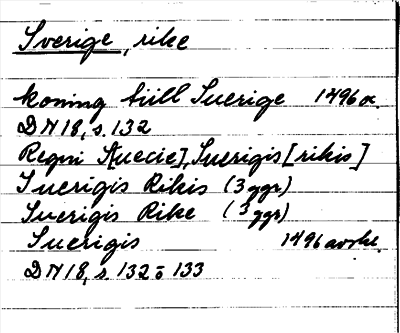 Sverige, rike
koning tiill Suerige 1496 or.
DN 18, s. 132
Regni S[uecie], Suerigis [rikis]
Suerigis Rikis (3 ggr)
Suerigis Rike (3 ggr)
Suerigis 1496 avskr.
DN 18, s. 132 o 133